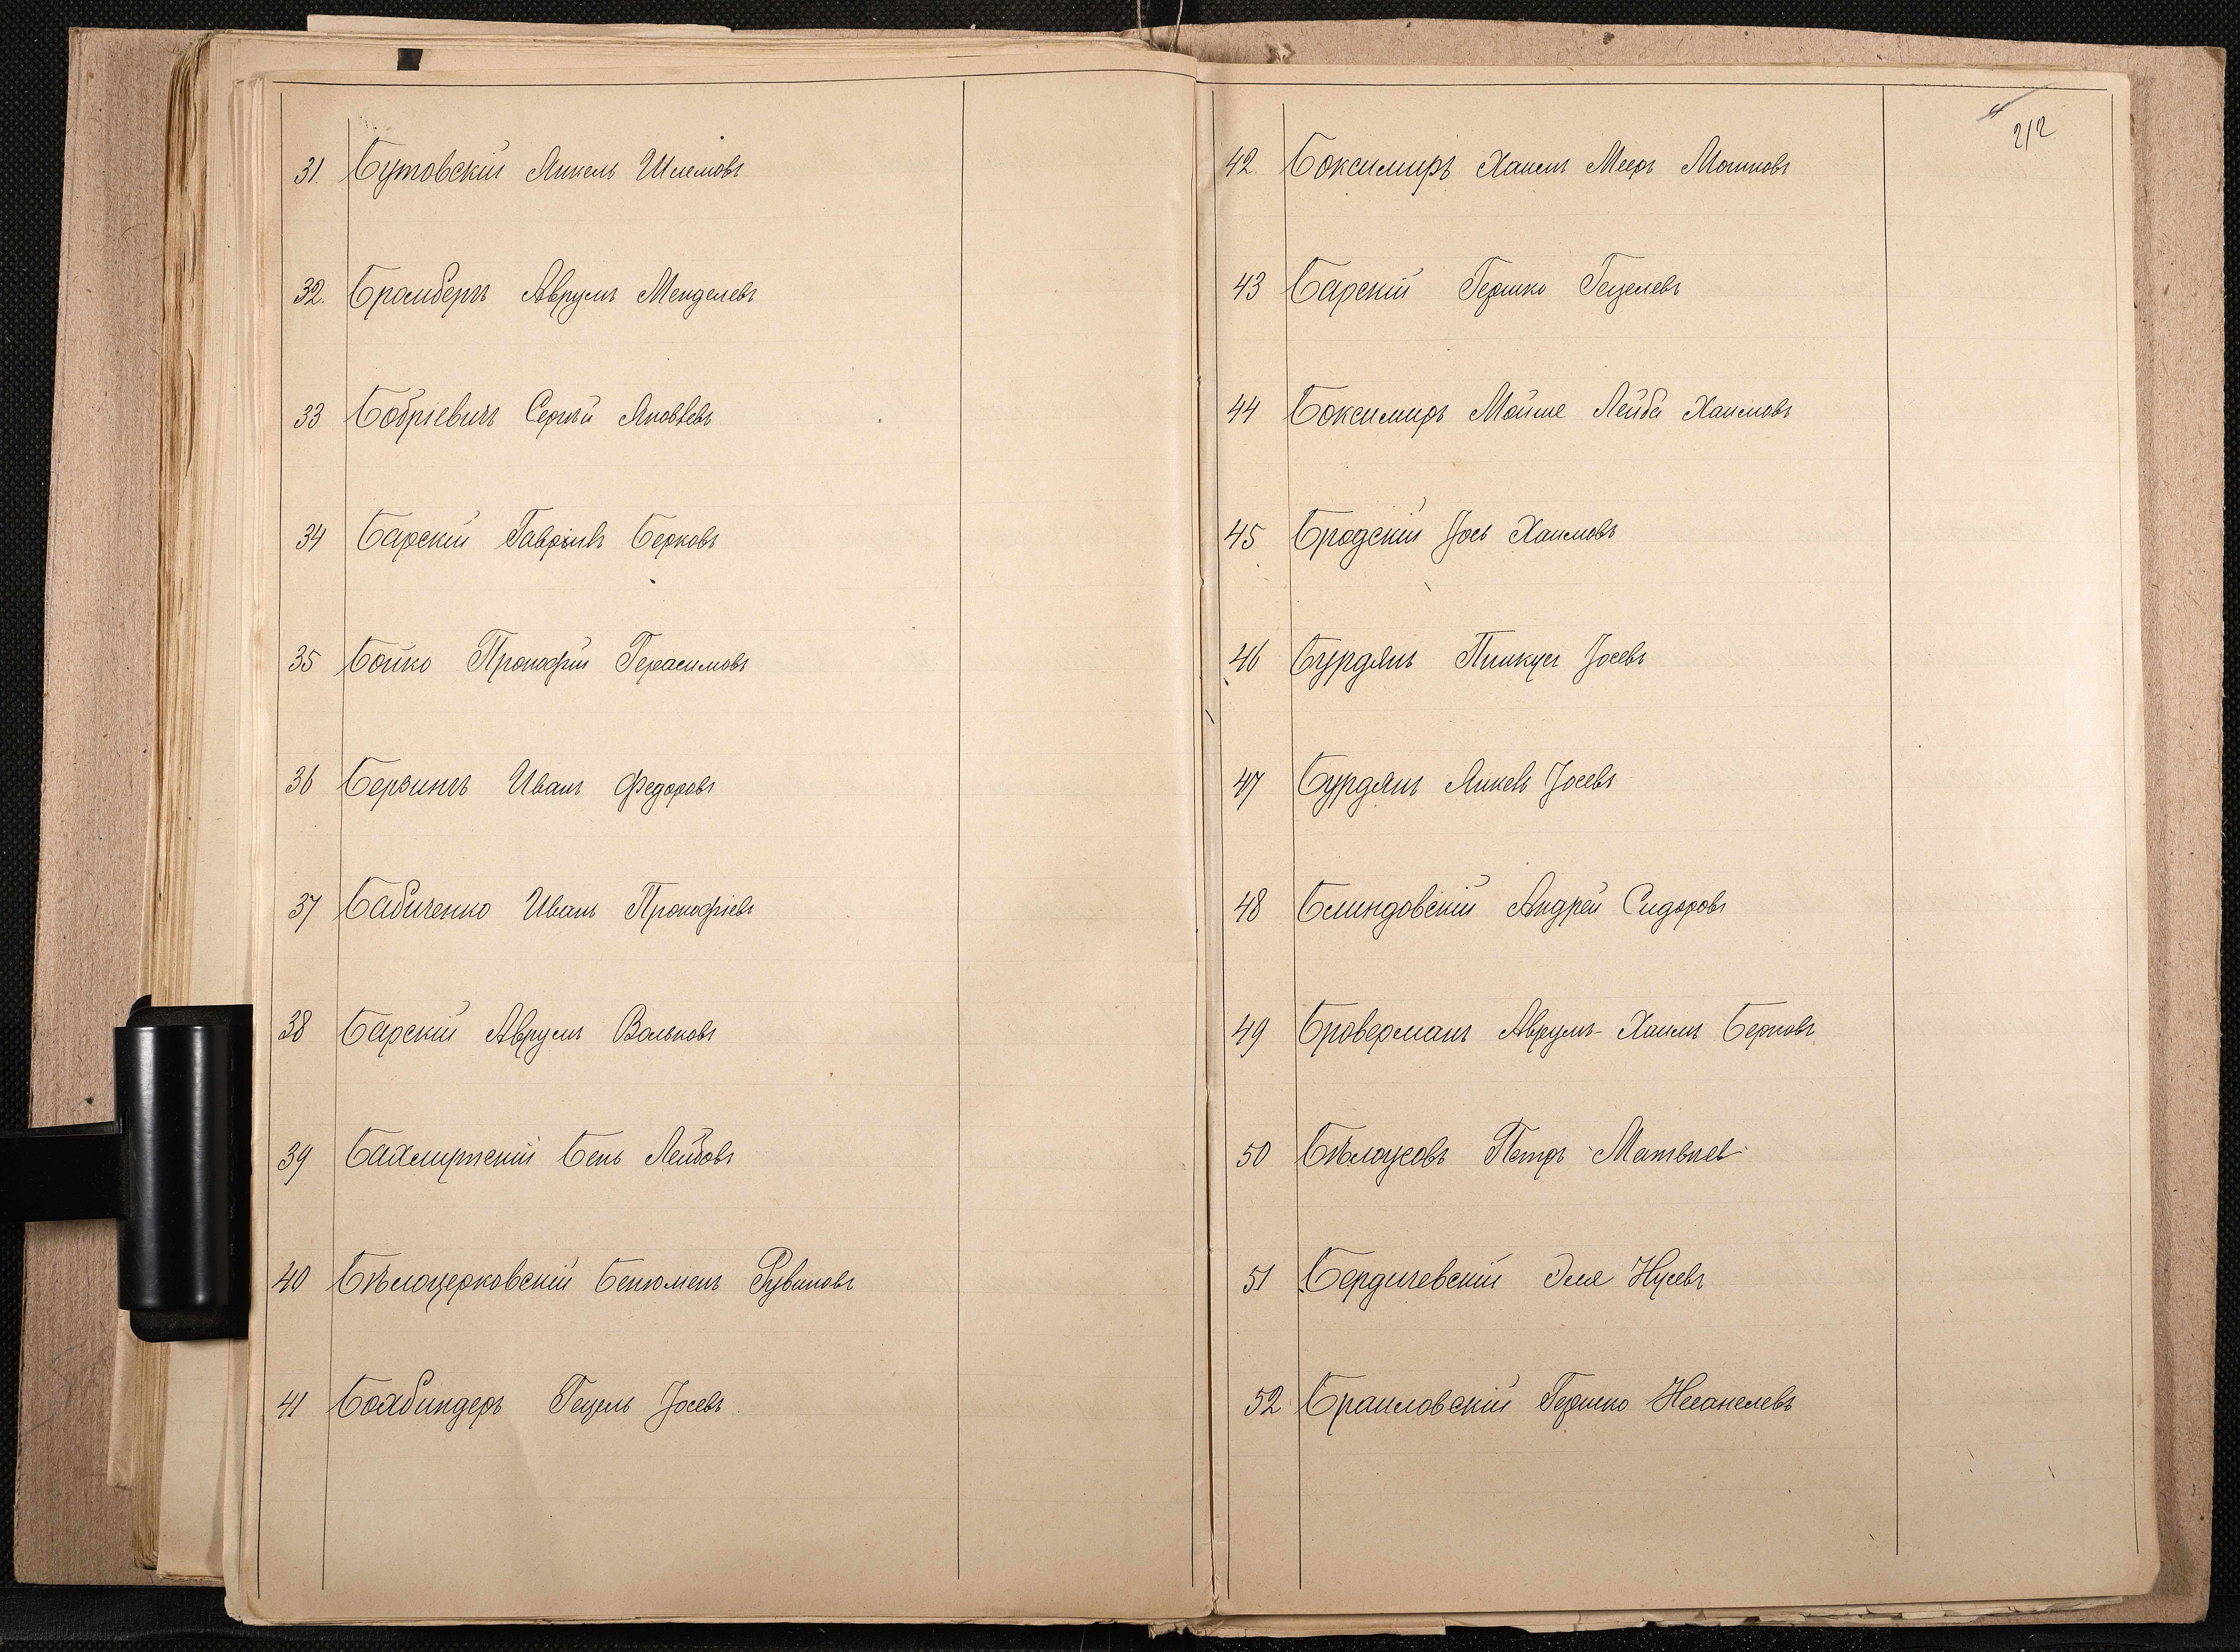 31. Бутовскій Янкель Шлемовъ
32. Бромбергъ Аврумъ Менделевъ
33 Бобріевичъ Сергѣй Яковлевъ
34 Барскій Гавріилъ Берковъ
35 Бойко Прокофій Герасимовъ
36 Берзингъ Иванъ Федоровъ
37 Бабиченко Иванъ Прокофіевъ
38 Барскій Аврумъ Вольковъ
39 Бахмутскій Бень Лейбовъ
40 Бѣлоцерковскій Бенюменъ Рувиновъ
41 Бохбиндеръ Гецель Іосевъ
212
42. Боксимиръ Хаимъ Мееръ Мошковъ
43 Барскій Гершко Гецелевъ
44 Боксимиръ Мойше Лейба Хаимовъ
45 Бродскій Іось Хаимовъ
46 Бурдянъ Пинкусъ Іосевъ
47 Бурдянъ Янкель Іосевъ
48 Блиндовскій Андрей Сидоровъ
49 Броверманъ Аврумъ-Хаимъ Берковъ
50 Бѣлоусовъ Петръ Матвѣев
51 Бердичевскій Эля Нусевъ
52 Браиловскій Гершко Несанелевъ